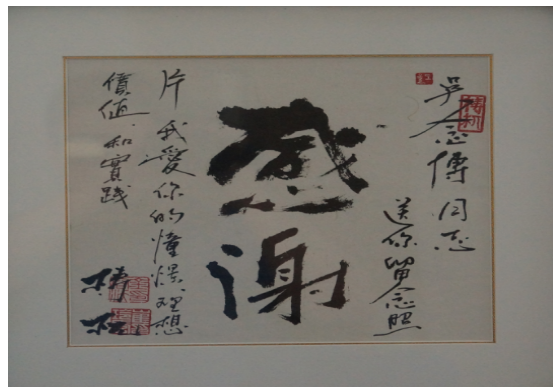 吳念傳同志
送你留念照
感謝
片我愛你的憧憬、理想
價值、和實踐